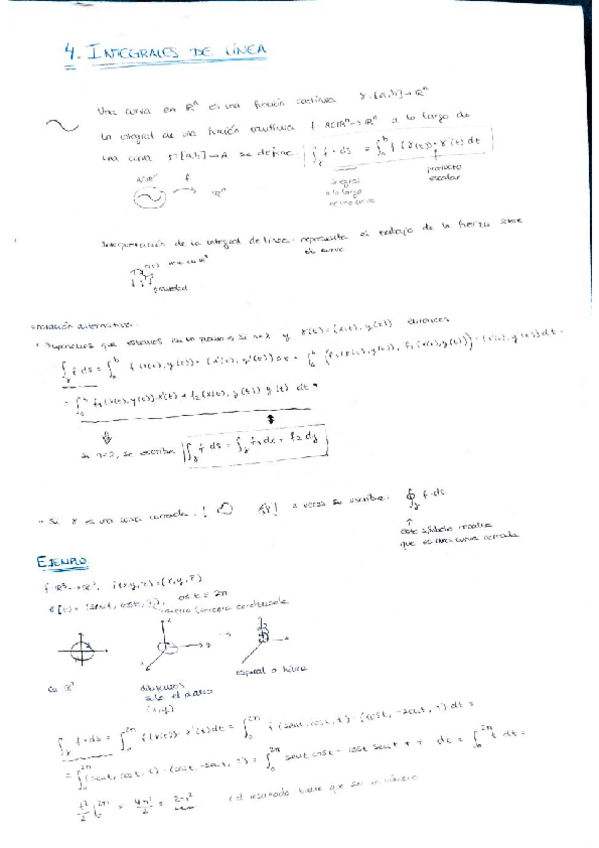 4. INTEGRALES DE LÍNEA
Una curva en ℝⁿ es una función continua γ: [a,b] → ℝⁿ
La integral de una función continua f: A⊂ℝⁿ → ℝⁿ a lo largo de
una curva γ: [a,b] → A se define ∫_γ f · ds = ∫_a^b f(γ(t)) · γ'(t) dt
A⊂ℝⁿ f ℝⁿ
integral a lo largo
producto escalar
Interpretación de la integral de línea: representa el trabajo de la fuerza sobre
gravedad
Notación alternativa:
Supongamos que estamos en n=2 y γ(t) = (x(t), y(t)) entonces
∫_γ f · ds = ∫_a^b f(x(t), y(t)) · (x'(t), y'(t)) dt = ∫_a^b (f₁(x(t), y(t)), f₂(x(t), y(t))) · (x'(t), y'(t)) dt =
= ∫_a^b f₁(x(t), y(t)) x'(t) + f₂(x(t), y(t)) y'(t) dt
si n=2, se escribe ∫_γ f · ds = ∫_γ f₁ dx + f₂ dy
Si γ es una curva cerrada a veces se escribe: ∮_γ f · ds
este símbolo resalta
que es una curva cerrada
EJEMPLO
f: ℝ³ → ℝ³, f(x,y,z) = (x,y,z)
γ(t) = (sent, cost, t), 0≤t≤2π
tercera coordenada
en ℝ²
dibujamos
sobre el plano
(x,y)
espiral o hélice
∫_γ f · ds = ∫_0^{2π} f(γ(t)) · γ'(t) dt = ∫_0^{2π} f(sent, cost, t) · (cost, -sent, 1) dt =
= ∫_0^{2π} (sent, cost, t) · (cost, -sent, 1) = ∫_0^{2π} sent cost - cost sent + t dt = ∫_0^{2π} t dt =
t²/2 |_0^{2π} = 4π²/2 = 2π² (el resultado tiene que ser un número)